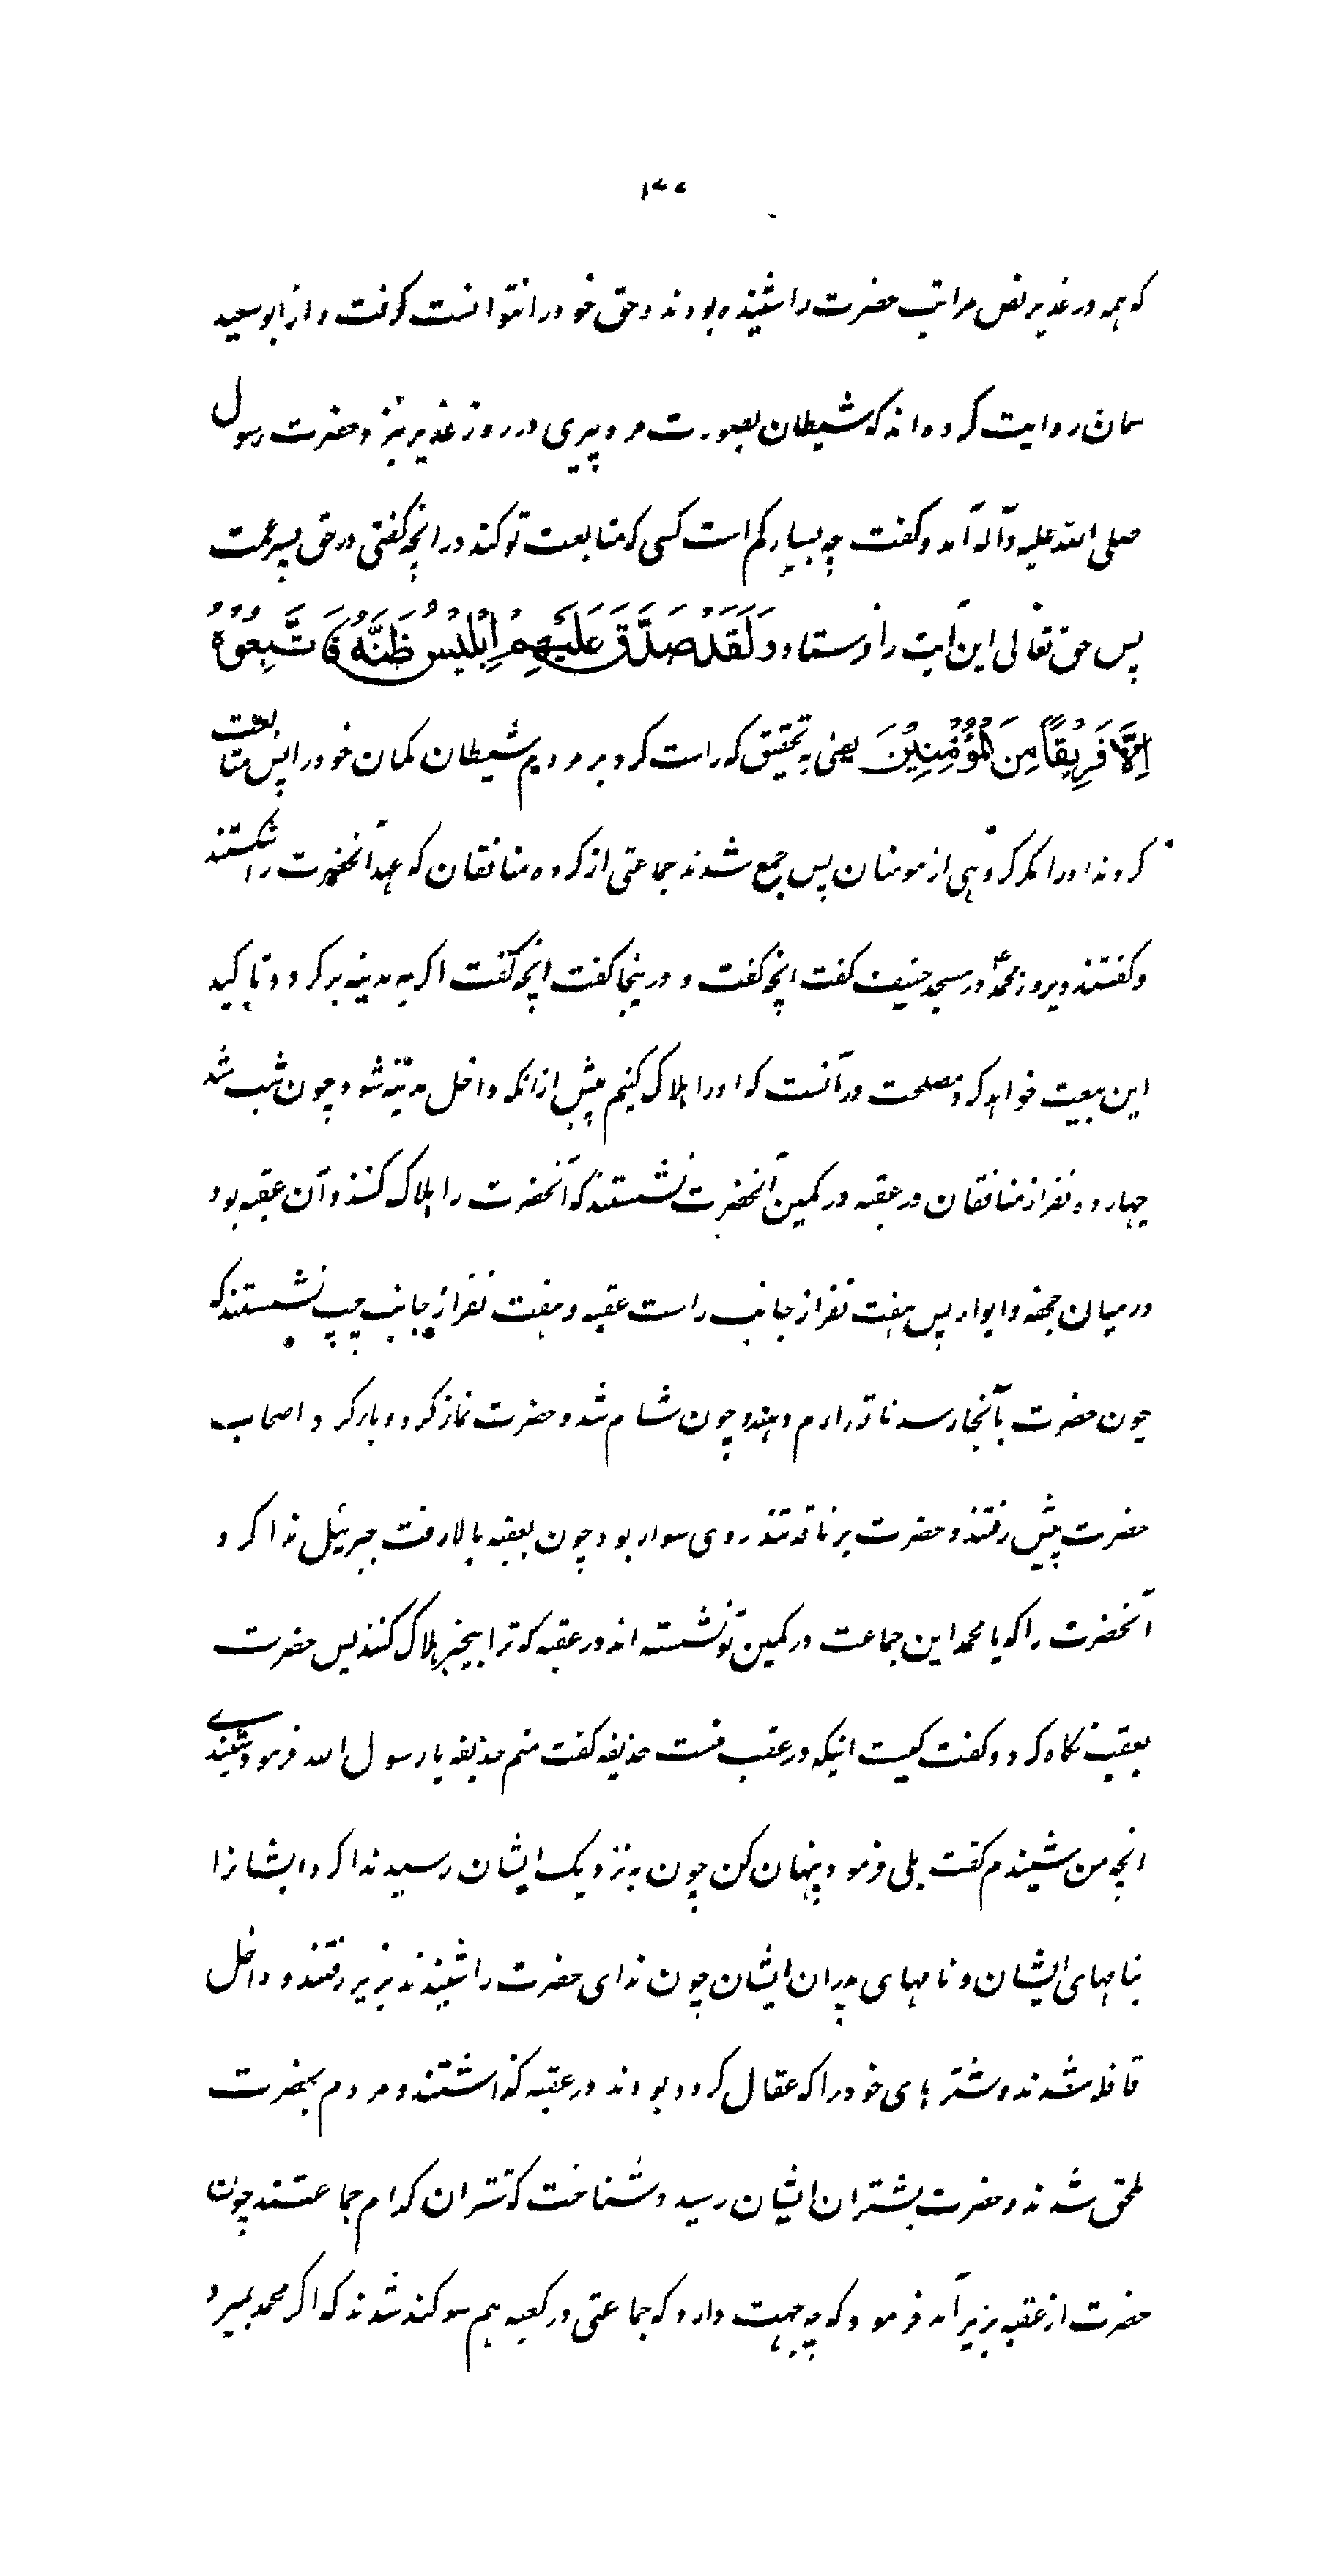 ۱۳۷
که همه در غدیر نص مراتب حضرت را شنیده بودند و حق خود را نتوانست کرفت و از ابوسعید
سمان روایت کرده اند که شیطان بصورت مرد پیری در روز غدیر نزد حضرت رسول
صلی الله علیه و آله آمد و کفت چه بسیار کم است کسی که متابعت تو کند در انچه کفتی در حق پسر عمت
پس حق تعالی این آیت را فرستاد وَلَقَدْ صَدَّقَ عَلَيْهِمْ إِبْلِيْسُ ظَنَّهُ فَاتَّبَعُوْهُ
اِلَّا فَرِيْقًا مِنَ الْمُؤْمِنِيْنَ یعنی به تحقیق که راست کرد بر مردم شیطان کمان خود را پس متابعت
کردند او را مکر کروهی از مومنان پس جمع شدند جماعتی از کروه منافقان که عهد آنحضرت را شکستند
و کفتند دیروز محمد در مسجد خیف کفت انچه کفت و در ینجا کفت انچه کفت اکر به مدینه بر کردد تاکید
این بیعت خواهد کرد مصلحت در آنست که او را هلاک کنیم پیش از انکه داخل مدینه شود چون شب شد
چهارده نفر از منافقان در عقبه در کمین آنحضرت نشستند که آنحضرت را هلاک کنند و آن عقبه بود
در میان جحفه و ابواء پس هفت نفر از جانب راست عقبه و هفت نفر از جانب چپ نشستند که
چون حضرت بآنجا رسد ناقه را رم دهند و چون شام شد و حضرت نماز کرد و بار کرد و اصحاب
حضرت پیش رفتند و حضرت بر ناقه تند روی سوار بود چون بعقبه بالا رفت جبرئیل ندا کرد
آنحضرت را که یا محمد این جماعت در کمین تو نشسته اند در عقبه که ترا بیخبر هلاک کنند پس حضرت
بعقب نکاه کرد و کفت کیست اینکه در عقب منست حذیفه کفت منم حذیفه یا رسول الله فرمود شنیدی
انچه من شنیدم کفت بلی فرمود پنهان کن چون به نزدیک ایشان رسید ندا کرد ایشانرا
بنامهای ایشان و نامهای پدران ایشان چون ندای حضرت را شنیدند بزیر رفتند و داخل
قافله شدند و شتر های خود را که عقال کرده بودند در عقبه کذاشتند و مردم بحضرت
ملحق شدند و حضرت بشتران ایشان رسید و شناخت که شتران کدام جماعتند چون
حضرت از عقبه بزیر آمد فرمود که چه جهت دارد که جماعتی در کعبه هم سوکند شدند که اکر محمد بمیرد